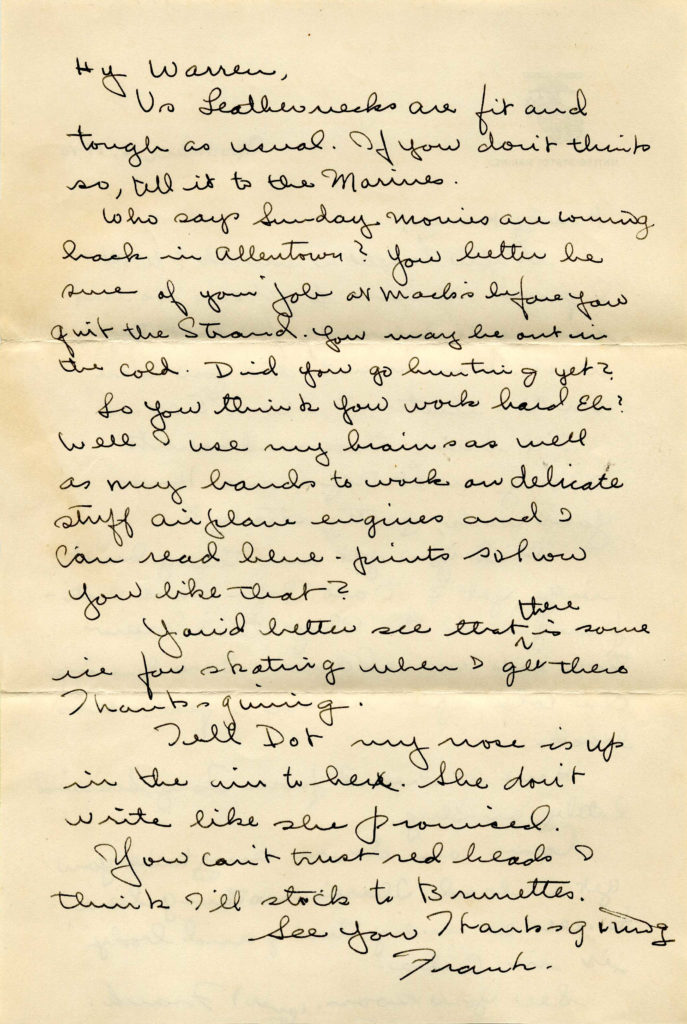 Hy Warren,
Us Leathernecks are fit and
tough as usual. If you don't think
so, tell it to the Marines.
Who says Sunday movies are coming
back in Allentown? You better be
sure of your job at Mack's before you
quit the Strand. You may be out in
the cold. Did you go hunting yet?
So you think you work hard Eh?
Well I use my brains as well
as my hands to work on delicate
stuff airplane engines and I
can read blue-prints so how
you like that?
You'd better see that there is some
ice for skating when I get there
Thanksgiving.
Tell Dot my nose is up
in the air to her. She don't
write like she promised.
You can't trust red heads I
think I'll stick to Brunettes.
See you Thanksgiving
Frank.